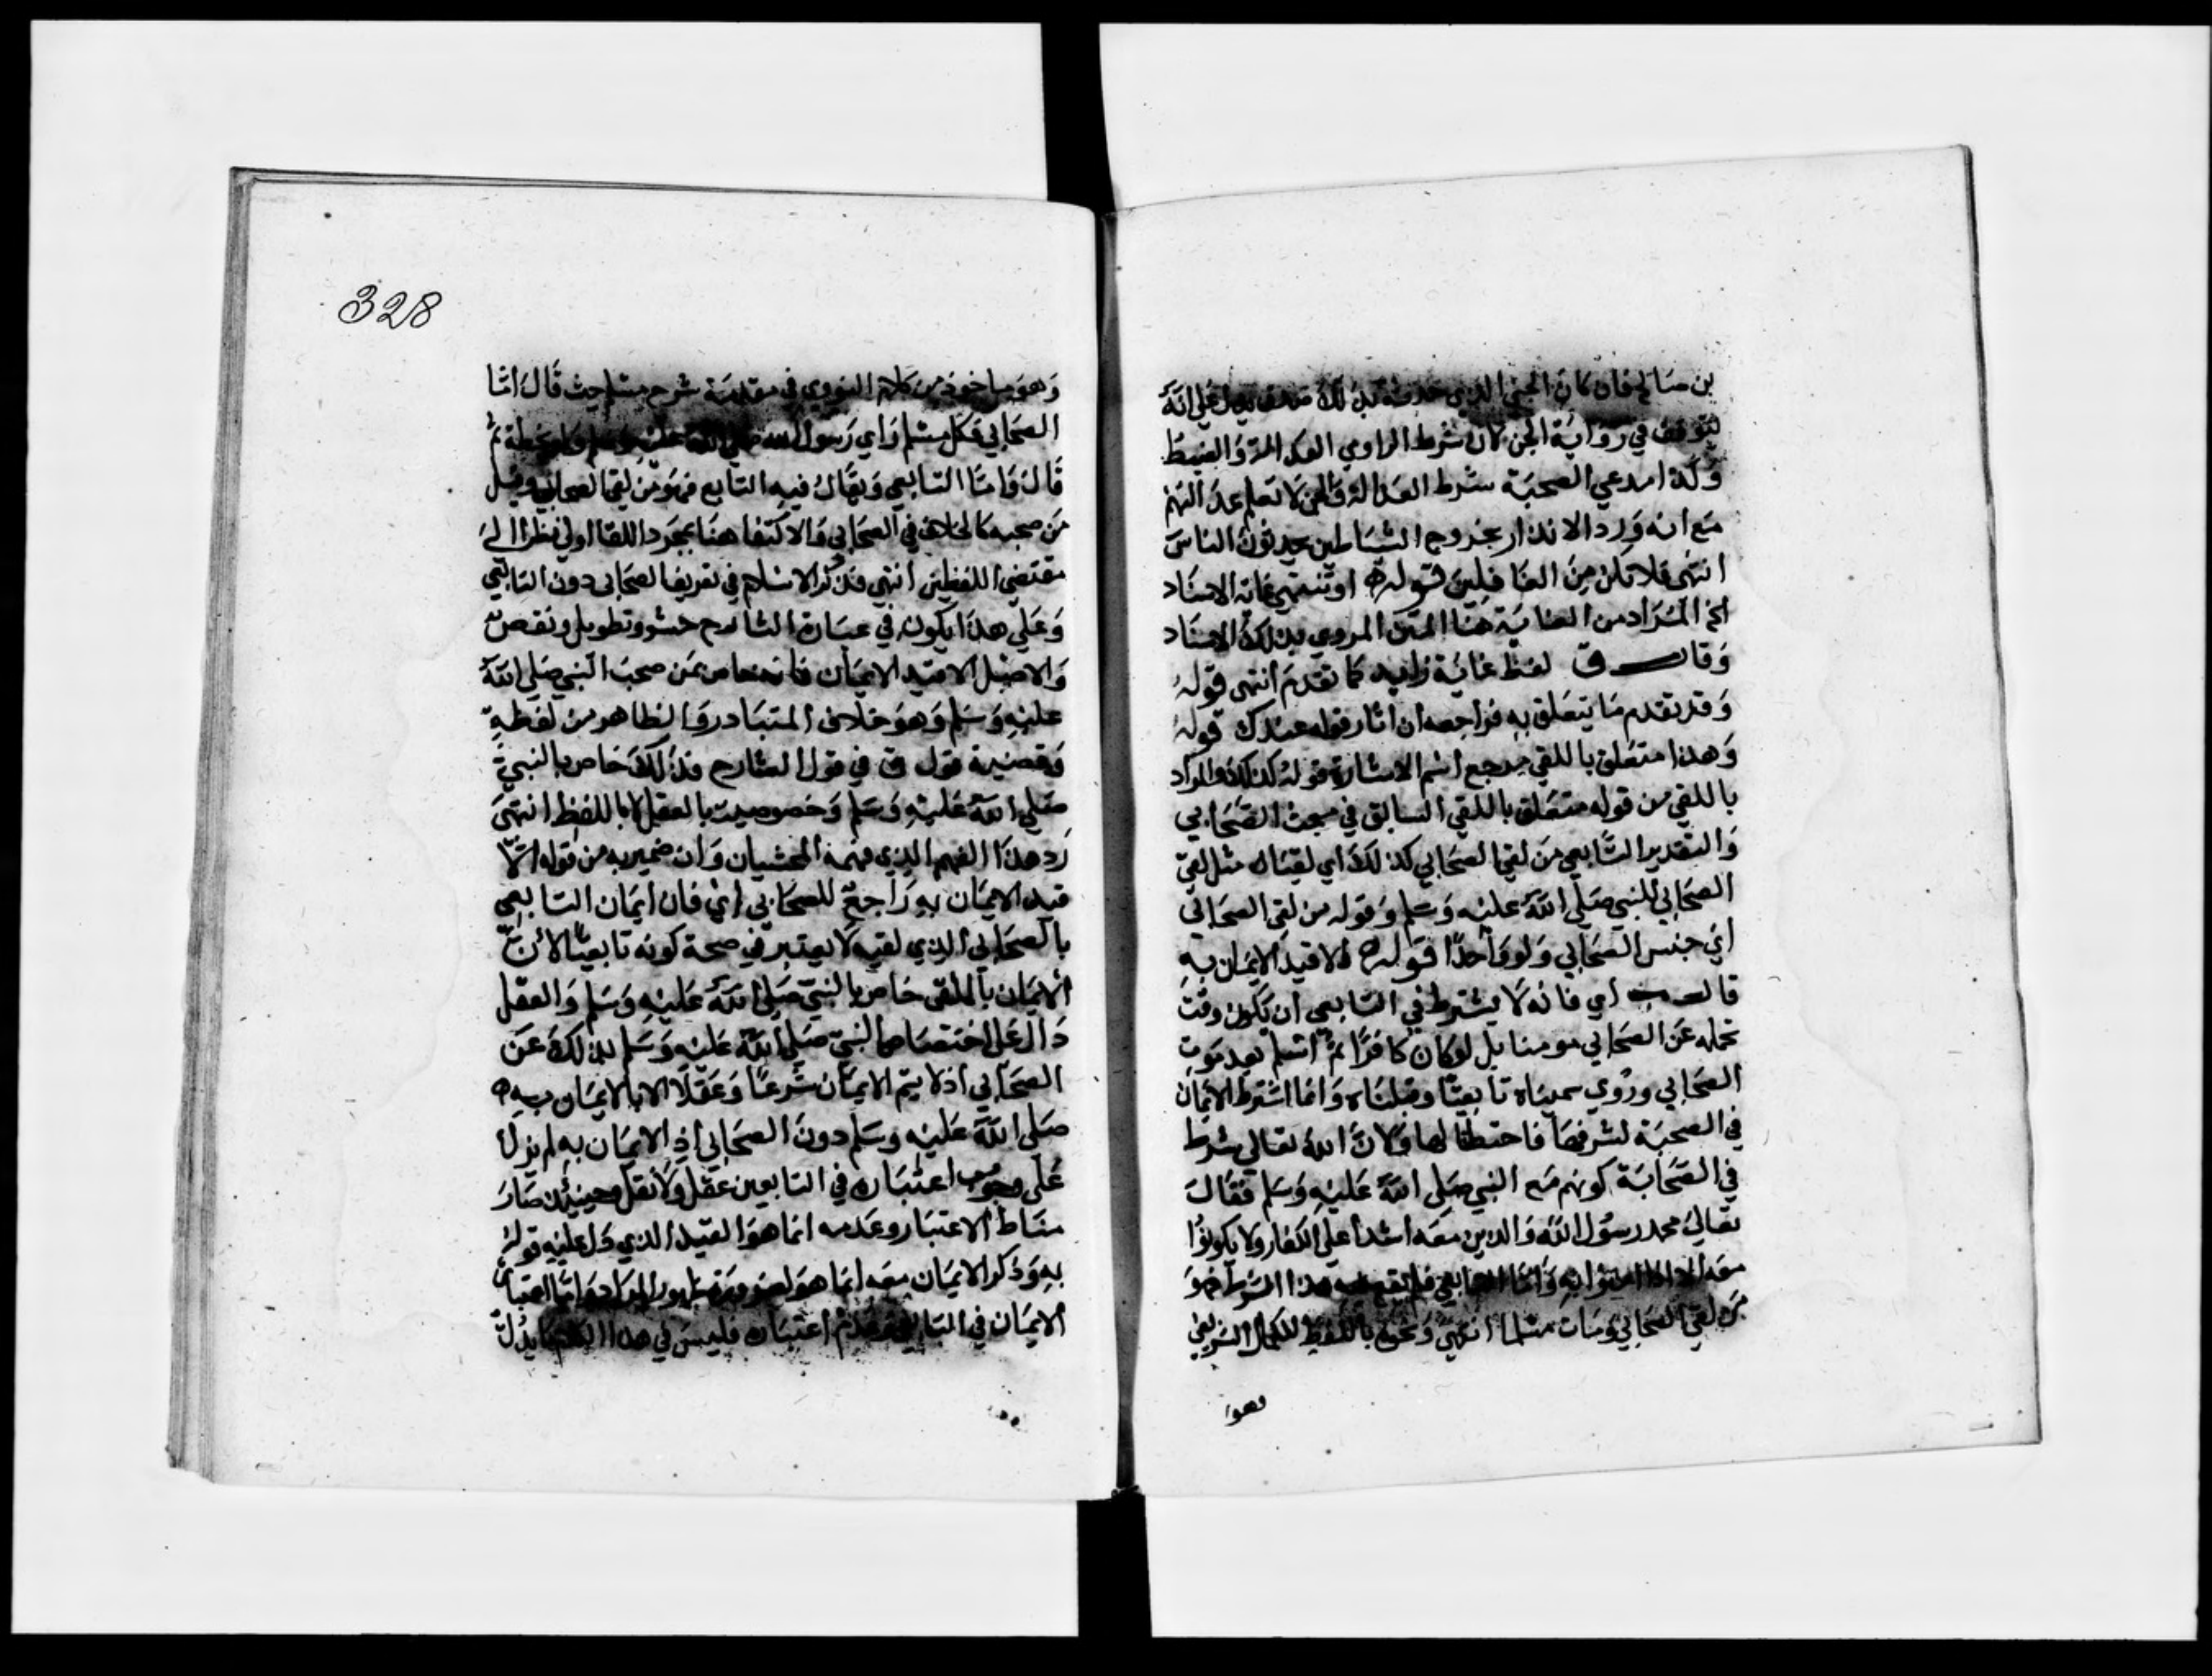 بن صالح فان كان الجني الذي حدثه بذلك صدق يدل على انه
يتوقف في رواية الجن لان شرط الراوي العدالة والضبط
وكذا مدعي الصحبة شرط العدالة والجن لا تعلم عدالتهم
مع انه ورد الانذار بخروج الشياطين يحدثون الناس
انتهى فلا تكن من الغافلين قوله او تنتهي غاية الاسناد
الخ المراد من الغاية هنا المتن المروي بذلك الاسناد
وقال ق لفظ غاية زايد كما تقدم انتهى قوله
وقد تقدم ما يتعلق به فراجعه ان اثار قوله عندك قوله
وهذا متعلق باللقي مرجع اسم الاشارة قوله كذلك والمراد
باللقي من قوله متعلق باللقي السابق في مبحث الصحابي
والتقدير التابعي من لقي الصحابي كذلك اي لقياه مثل لقي
الصحابي للنبي صلى الله عليه وسلم وقوله من لقي الصحابي
اي جنس الصحابي ولو واحدا قوله الا قيد الايمان به
قال ب اي فانه لا يشترط في التابعي ان يكون وقت
تحمله عن الصحابي مومنا بل لو كان كافرا ثم اسلم بعد موت
الصحابي وروي سميناه تابعيا وقبلناه وانما اشترط الايمان
في الصحبة لشرفها فاحتطنا لها ولان الله تعالى شرط
في الصحابة كونهم مع النبي صلى الله عليه وسلم فقال
تعالى محمد رسول الله والذين معه اشدا على الكفار ولا يكونوا
معه الا اذا امنوا به واما التابعي فلم يقع فيه هذا الشرط فهو
من لقي الصحابي ومات مسلما انتهى ونحوه باللفظ للكمال الشريفي
وهو
328
وهو ماخوذ من كلام النووي في مقدمة شرح مسلم حيث قال اما
الصحابي فكل مسلم راي رسول الله صلى الله عليه وسلم ولو لحظة ثم
قال واما التابعي ويقال فيه التابع فهو من لقي الصحابي وقيل
من صحبه كالخلاف في الصحابي والاكتفا هنا بمجرد اللقا اولى نظرا الى
مقتضى اللفظين انتهى فذكر الاسلام في تعريف الصحابي دون التابعي
وعلى هذا يكون في عبارة الشارح حشو وتطويل ونقص
والاصل الا قيد الايمان فانه خاص بمن صحب النبي صلى الله
عليه وسلم وهو خلاف المتبادر والظاهر من لفظه
وقضية قول ق في قول الشارح فذلك خاص بالنبي
صلى الله عليه وسلم وخصوصيته بالعقل لا باللفظ انتهى
رد هذا الفهم الذي فهمه المحشيان وان ضمير به من قوله الا
قيد الايمان به راجع للصحابي اي فان ايمان التابعي
بالصحابي الذي لقيه لا يعتبر في صحة كونه تابعيا لان
الايمان بالملقى خاص بالنبي صلى الله عليه وسلم والعقل
دال على اختصاص النبي صلى الله عليه وسلم بذلك عن
الصحابي اذ لا يتم الايمان شرعا وعقلا الا بالايمان به
صلى الله عليه وسلم دون الصحابي اذ الايمان به لم يدل
على وجوب اعتباره في التابعين عقل ولا نقل وحينئذ صار
مناط الاعتبار وعدمه انما هو القيد الذي دل عليه قوله
به وذكر الايمان معه انما هو لضرورة ظهور المراد واما اعتبار
الايمان في التابعي وعدم اعتباره فليس في هذا الكلام ما يدل